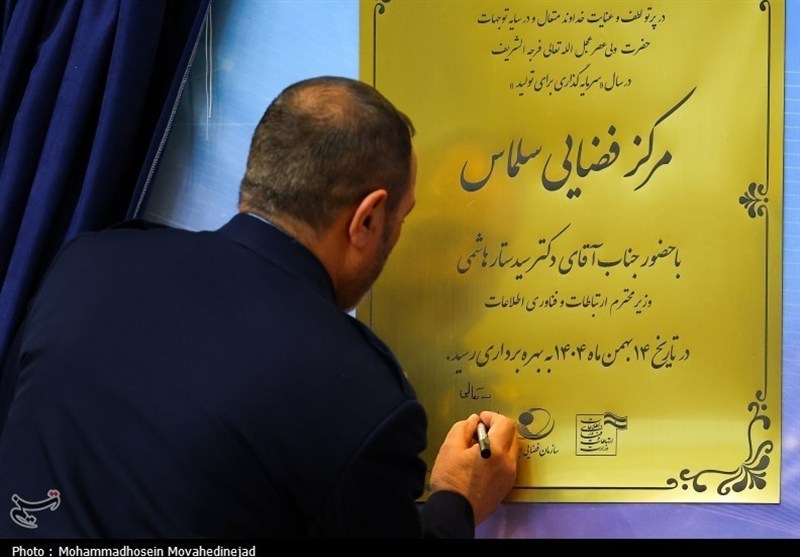 در پرتو لطف و عنایت خداوند متعال و در سایه توجهات
حضرت ولی عصر عجل الله تعالی فرجه الشریف
در سال «سرمایه گذاری برای تولید»
مرکز فضایی سلماس
با حضور جناب آقای دکتر سید ستار هاشمی
وزیر محترم ارتباطات و فناوری اطلاعات
در تاریخ ۱۴ بهمن ماه ۱۴۰۴ به بهره برداری رسید.
سازمان فضایی
تسنیم
Photo : Mohammadhosein Movahedinejad